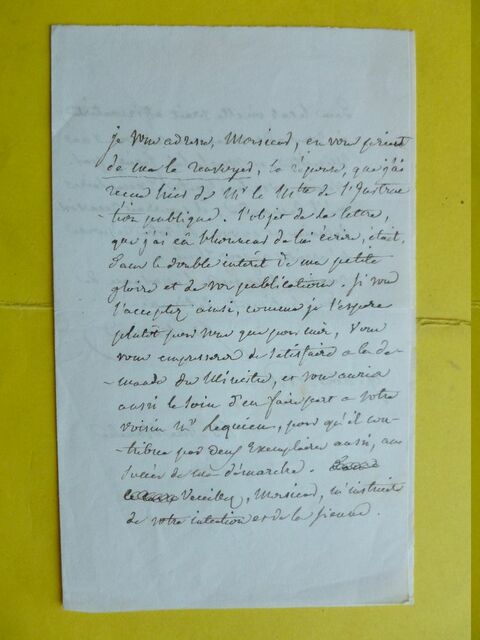 je vous adresse, Monsieur, en vous priant
de me la renvoyer, la réponse, que j'ai
recue hier de Mr le Mtre de l'Instruc
-tion publique. l'objet de la lettre,
que j'ai eû l'honneur de lui écrire, était
dans le double intérêt de ma petite
gloire et de vos publications. Si vous
l'acceptez ainsi, comme je l'espère
plutôt pour vous que pour moi, vous
vous empresserez de satisfaire a la de-
mande du Ministre, et vous aurez
aussi le soin d'en faire part a votre
voisin Mr Requien, pour qu'il con-
tribue par deux Exemplaires aussi, au
succès de ma démarche.
Veuillez, Monsieur, m'instruire
de votre intention et de la sienne.